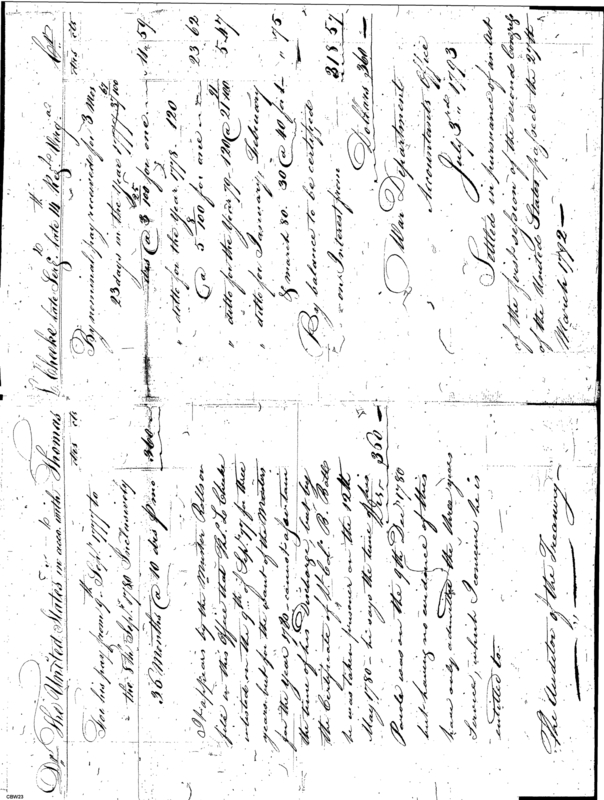 Dr. The United States in acco. with Thomas
dlrs cts
For his pay from 9th Septr. 1777 to
the 8th Septr. 1780 Inclusively
36 Months @ 10 dlrs pr mo 360 -
It appears by the Muster Rolls on
file in this Office that Thos. L. Cheeke
inlisted on the 9th of Septr. 77 for three
years, but for the want of the Musters
for the year 1780 cannot ascertain
the time of his Discharge, but by
the Certificate of Lt Colo. B. Ball
he was taken prisoner on the 12th
May 1780 - he says the time of his
Parole was on the 9th Decr 1780
but having no evidence of this
have only admitted the three years
Service, which I conceive he is
entitled to.
360 -
The Auditor of the Treasury
L. Cheeke late Sergt. late 14th Regt. Virga. Cr.
dlrs cts
By nominal pay received for 3 Mos
23 days in the year 1777
dlrs @ 3 25/100 for one 11 59
" ditto for the year 1778 120
@ 5 8/100 for one 23 62
" ditto for the year 79 120 @ 21 100 5 47
" ditto for January, February
& march 80. 30 @ 40 for 1 " 75
By balance to be certified
on Interest from 318 57
Dollars 360 -
War Department
Accountants Office
July 3rd 1793
Settled in pursuance of an act
of the first session of the second Congress
of the United States passed the 27th
March 1792 -
CBW23